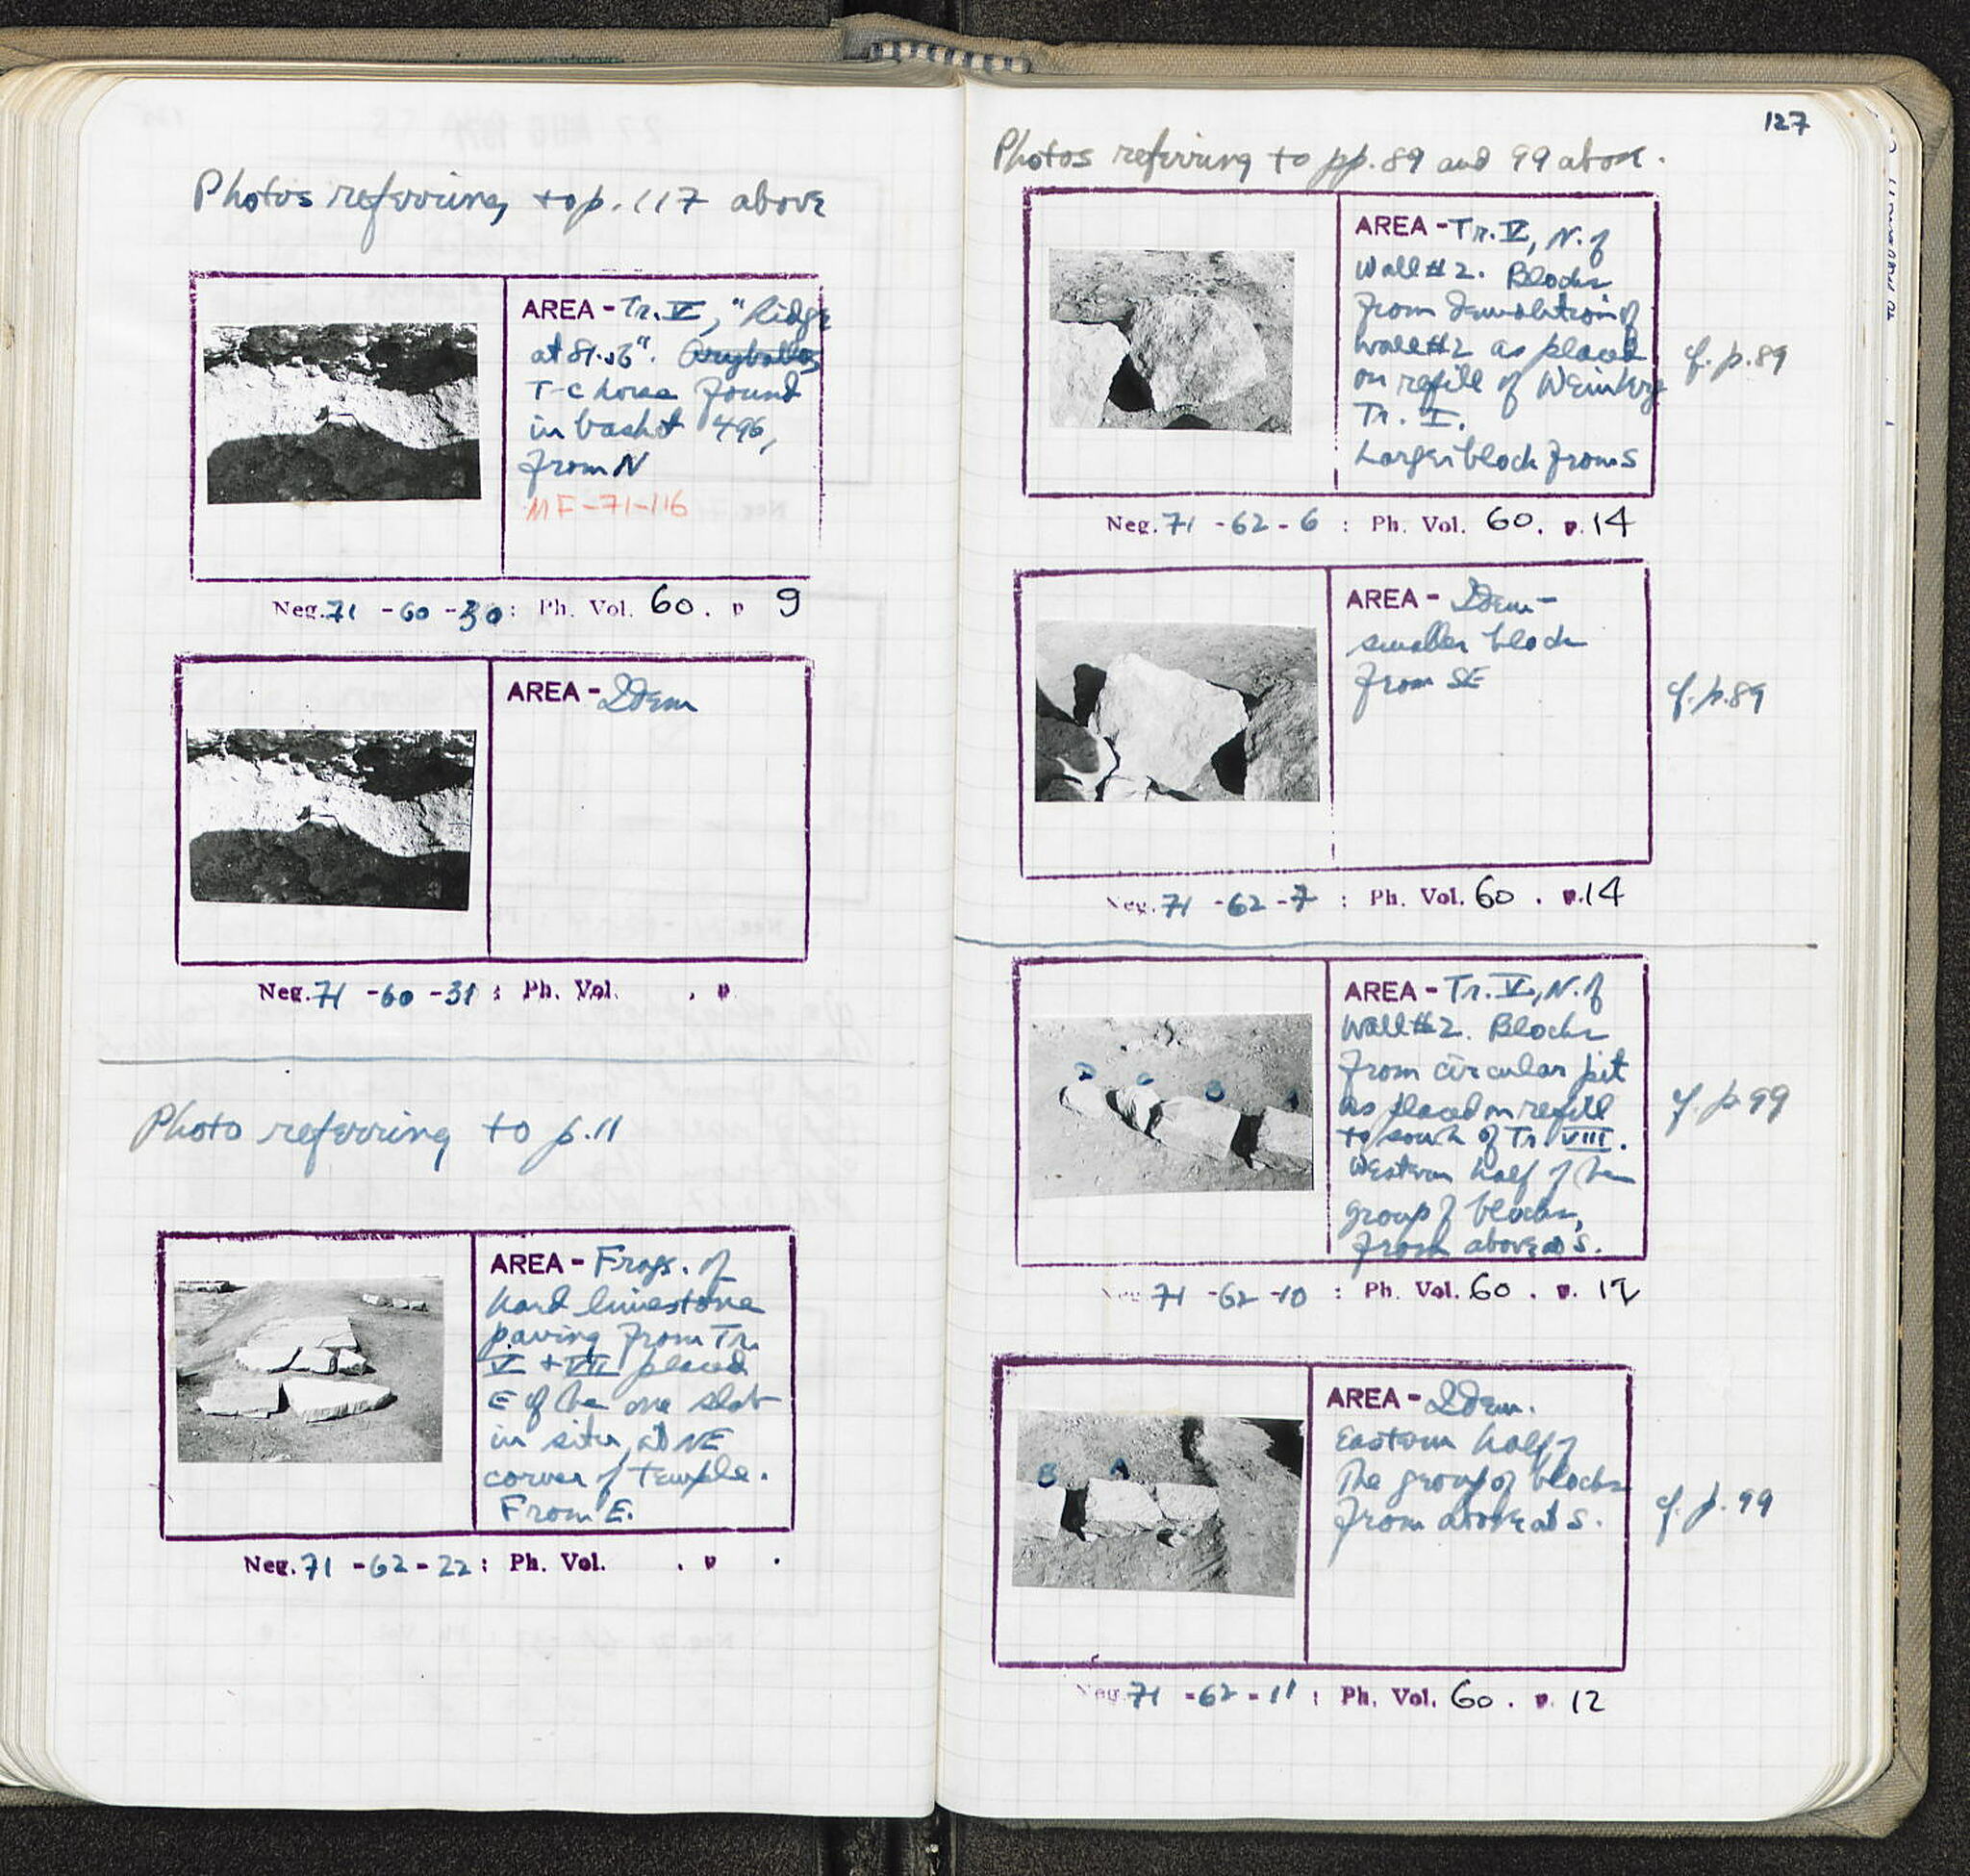 Photos referring to p. 117 above
AREA - Tr. V, "Ridge
at 81.06". Aryballos
T-C horse found
in basket 496,
from N
MF-71-116
Neg. 71 - 60 - 30 : Ph. Vol. 60. p 9
AREA - Idem
Neg. 71 - 60 - 31 : Ph. Vol. . p
Photo referring to p. 11
AREA - Frags. of
hard limestone
paving from Tr.
V + VII placed
E of the one slab
in situ, at NE
corner of temple.
From E.
Neg. 71 - 62 - 22 : Ph. Vol. . p .
127
Photos referring to pp. 89 and 99 above.
AREA - Tr. V, N. of
Wall #2. Blocks
from demolition of
wall #2 as placed
on refill of Weinberg
Tr. I.
Larger block from S
cf. p. 89
Neg. 71 - 62 - 6 : Ph. Vol. 60. p. 14
AREA - Idem -
smaller block
from SE
cf. p. 89
Neg. 71 - 62 - 7 : Ph. Vol. 60 . p. 14
AREA - Tr. V, N. of
Wall #2. Blocks
from circular pit
as placed on refill
to south of Tr. VIII.
Western half of the
group of blocks,
from above at S.
D C B A
cf. p. 99
Neg. 71 - 62 - 10 : Ph. Vol. 60 . p. 12
AREA - Idem.
Eastern half of
the group of blocks
from above at S.
B A
cf. p. 99
Neg. 71 - 62 - 11 : Ph. Vol. 60 . p. 12